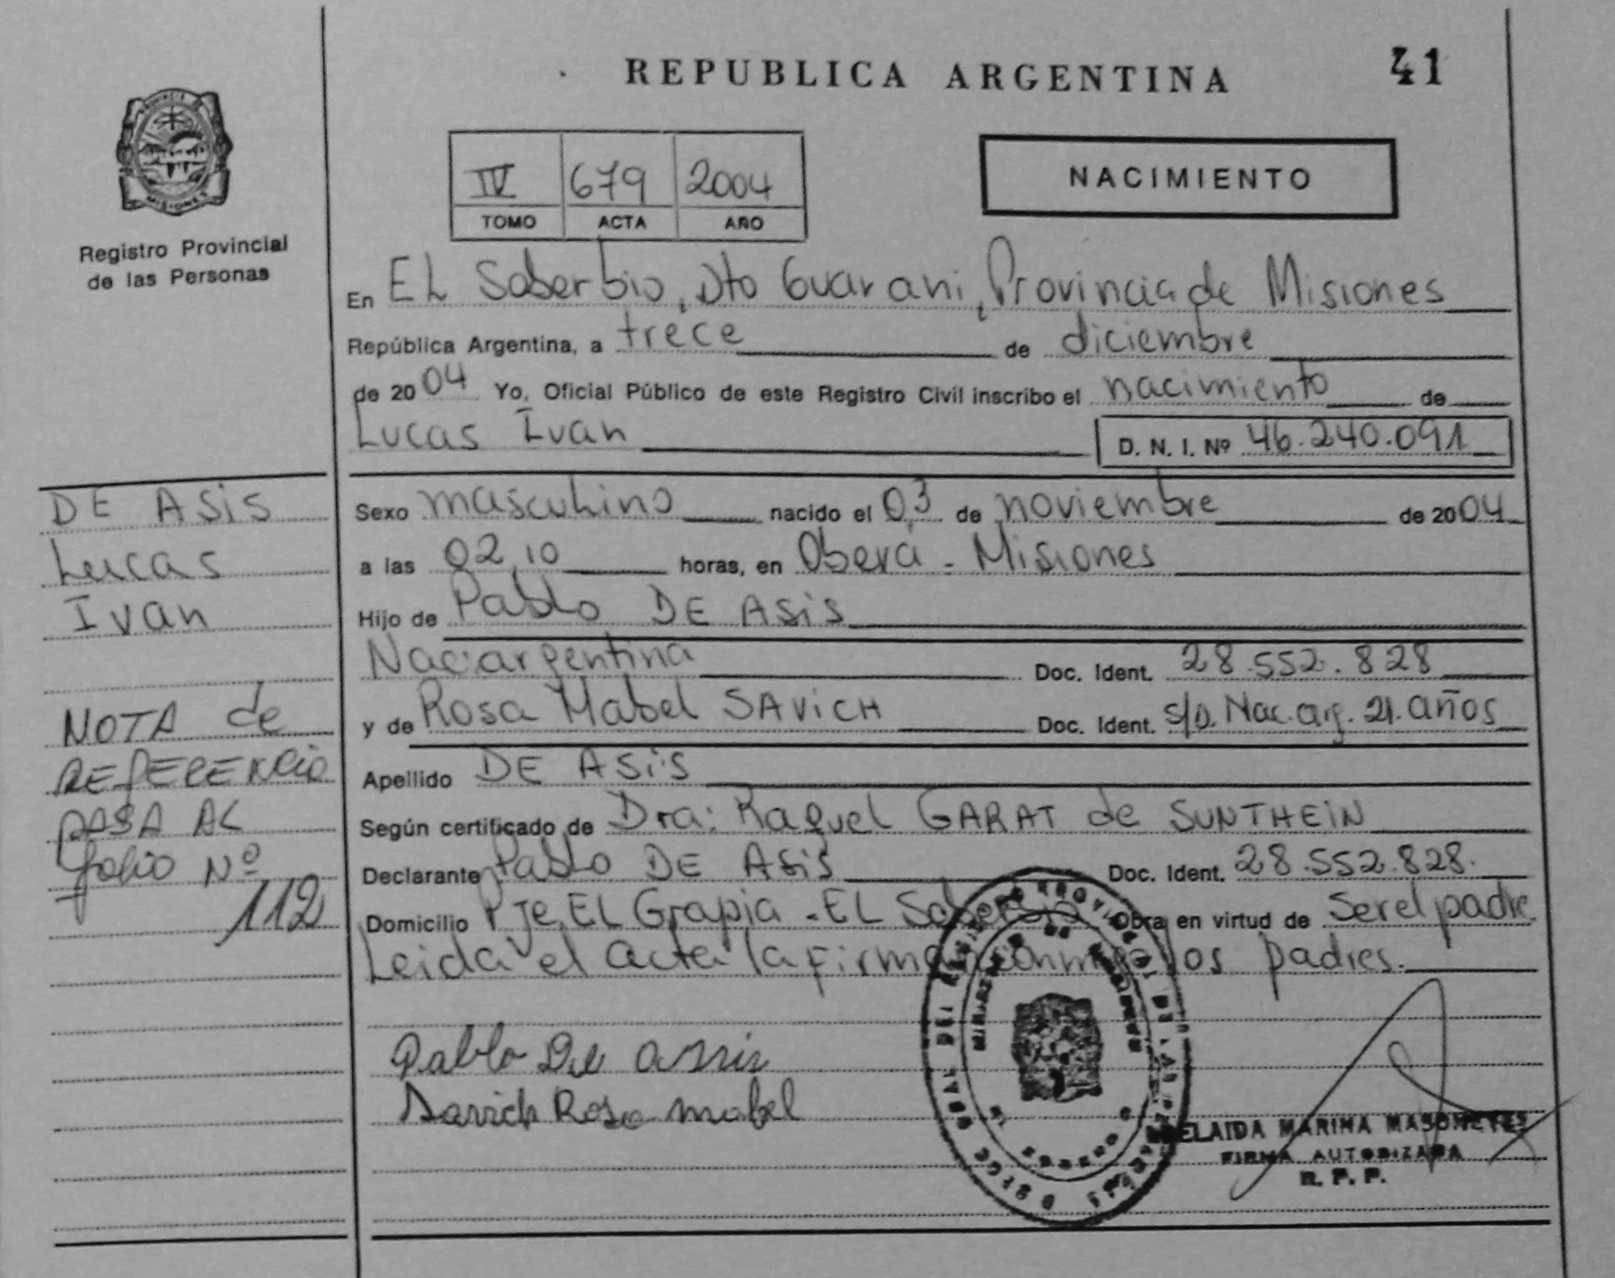 REPUBLICA ARGENTINA
41
PROVINCIA DE
MISIONES
Registro Provincial
de las Personas
IV 679 2004
TOMO ACTA AÑO
NACIMIENTO
En EL Soberbio, Dto Guarani, Provincia de Misiones
República Argentina, a trece de diciembre
de 2004 Yo, Oficial Público de este Registro Civil inscribo el nacimiento de
Lucas Ivan D. N. I. Nº 46.240.091
DE ASis
Lucas
Ivan
NOTA de
REFERENCIA
PASA AL
folio Nº
112
Sexo masculino nacido el 03 de noviembre de 2004
a las 02,10 horas, en Oberá - Misiones
Hijo de Pablo DE ASis
Nac: argentina Doc. Ident. 28.552.828
y de Rosa Mabel SAViCH Doc. Ident. s/d. Nac. arg. 21. años
Apellido DE ASiS
Según certificado de Dra: Raquel GARAT de SUNTHEiN
Declarante Pablo DE ASis Doc. Ident. 28.552.828.
Domicilio Pje. EL Grapia - EL Soberbio Obra en virtud de Ser el padre
Leida el acta la firman conmigo los padres.
Pablo De assis
Savich Rosa mabel
ADELAIDA MARINA MASONEYES
FIRMA AUTORIZADA
R. P. P.